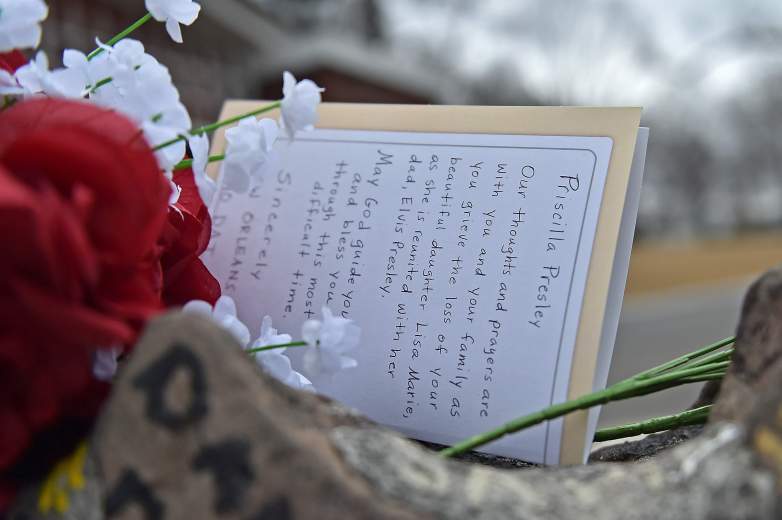 Priscilla Presley
Our thoughts and prayers are
with you and your family as
you grieve the loss of your
beautiful daughter Lisa Marie,
as she is reunited with her
dad, Elvis Presley.
May God guide you
and bless you
through this most
difficult time.
Sincerely
ORLEANS